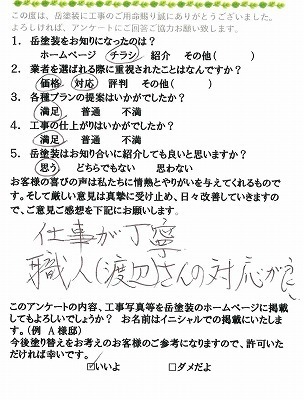 この度は、岳塗装に工事のご用命賜り誠にありがとうございました。
よろしければ、アンケートにご回答ご協力お願い致します。
1. 岳塗装をお知りになったのは？
ホームページ チラシ 紹介 その他( )
2. 業者を選ばれる際に重視されたことはなんですか？
価格 対応 評判 その他( )
3. 各種プランの提案はいかがでしたか？
満足 普通 不満
4. 工事の仕上がりはいかがでしたか？
満足 普通 不満
5. 岳塗装はお知り合いに紹介しても良いと思いますか？
思う どちらでもない 思わない
お客様の喜びの声は私たちに情熱とやりがいを与えてくれるものです。そして厳しい意見は真摯に受け止め、日々改善していきますので、ご意見ご感想を下記にお願いします。
仕事が丁寧
職人(渡辺)さんの対応が良い
このアンケートの内容、工事写真等を岳塗装のホームページに掲載してもよろしいでしょうか？ お名前はイニシャルでの掲載にいたします。(例 A 様邸)
今後塗り替えをお考えのお客様のご参考になりますので、許可いただければ幸いです。
☑いいよ □ダメだよ